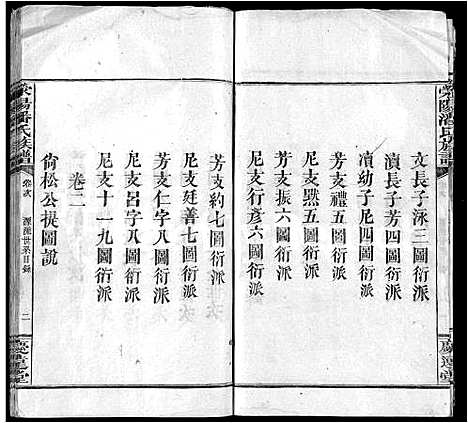 滎陽潘氏族譜
文長子泳三圖衍派
濆長子芳四圖衍派
濆幼子尼四圖衍派
芳支禮五圖衍派
尼支㷋五圖衍派
芳支振六圖衍派
尼支行彥六圖衍派
慶遠堂
芳支約七圖衍派
尼支廷善七圖衍派
芳支仁字八圖衍派
尼支呂字八圖衍派
尼支十一九圖衍派
卷二
尚松公挨圖說
滎陽潘氏族譜
卷首
源流世系目錄
二
慶遠堂